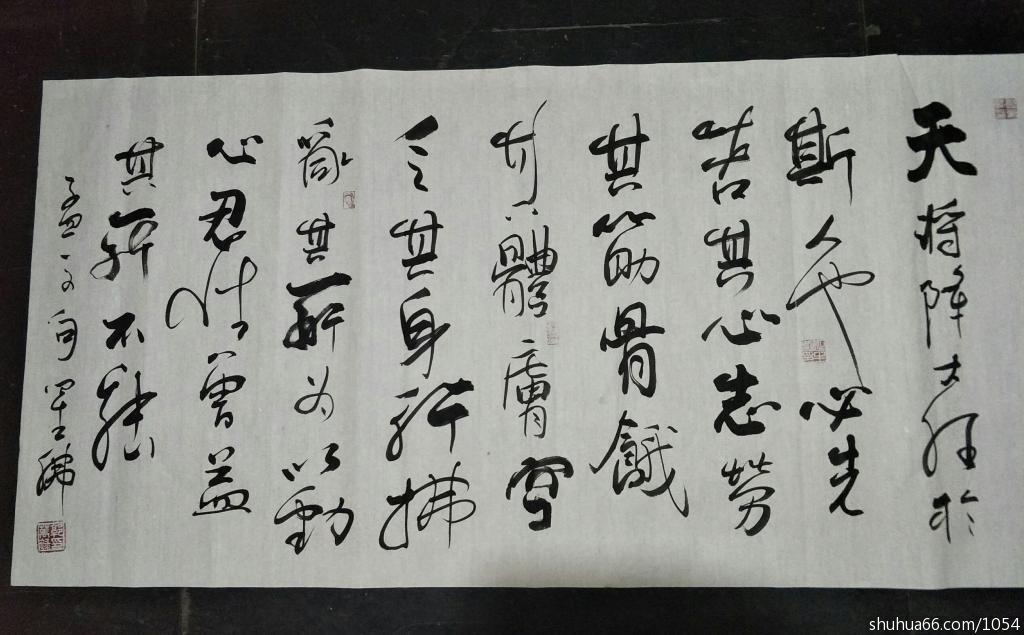 天将降大任於
斯人也必先
苦其心志勞
其筋骨餓
其體膚空
乏其身行拂
亂其所为以動
心忍性曾益
其所不能
孟子句
shuhua66.com/1054